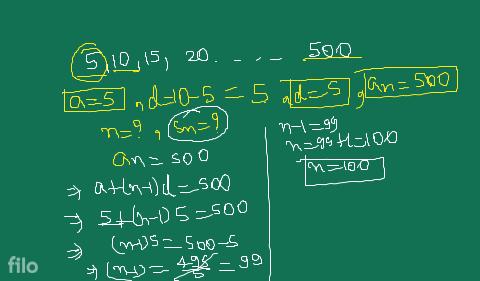 5, 10, 15, 20 . . . . . 500
a=5 , d=10-5 = 5 , d=5 , an=500
n=? , Sn=?
an=500
⇒ a+(n-1)d=500
⇒ 5+(n-1)5=500
⇒ (n-1)5=500-5
⇒ (n-1)=495/5=99
n-1=99
n=99+1=100
n=100
filo